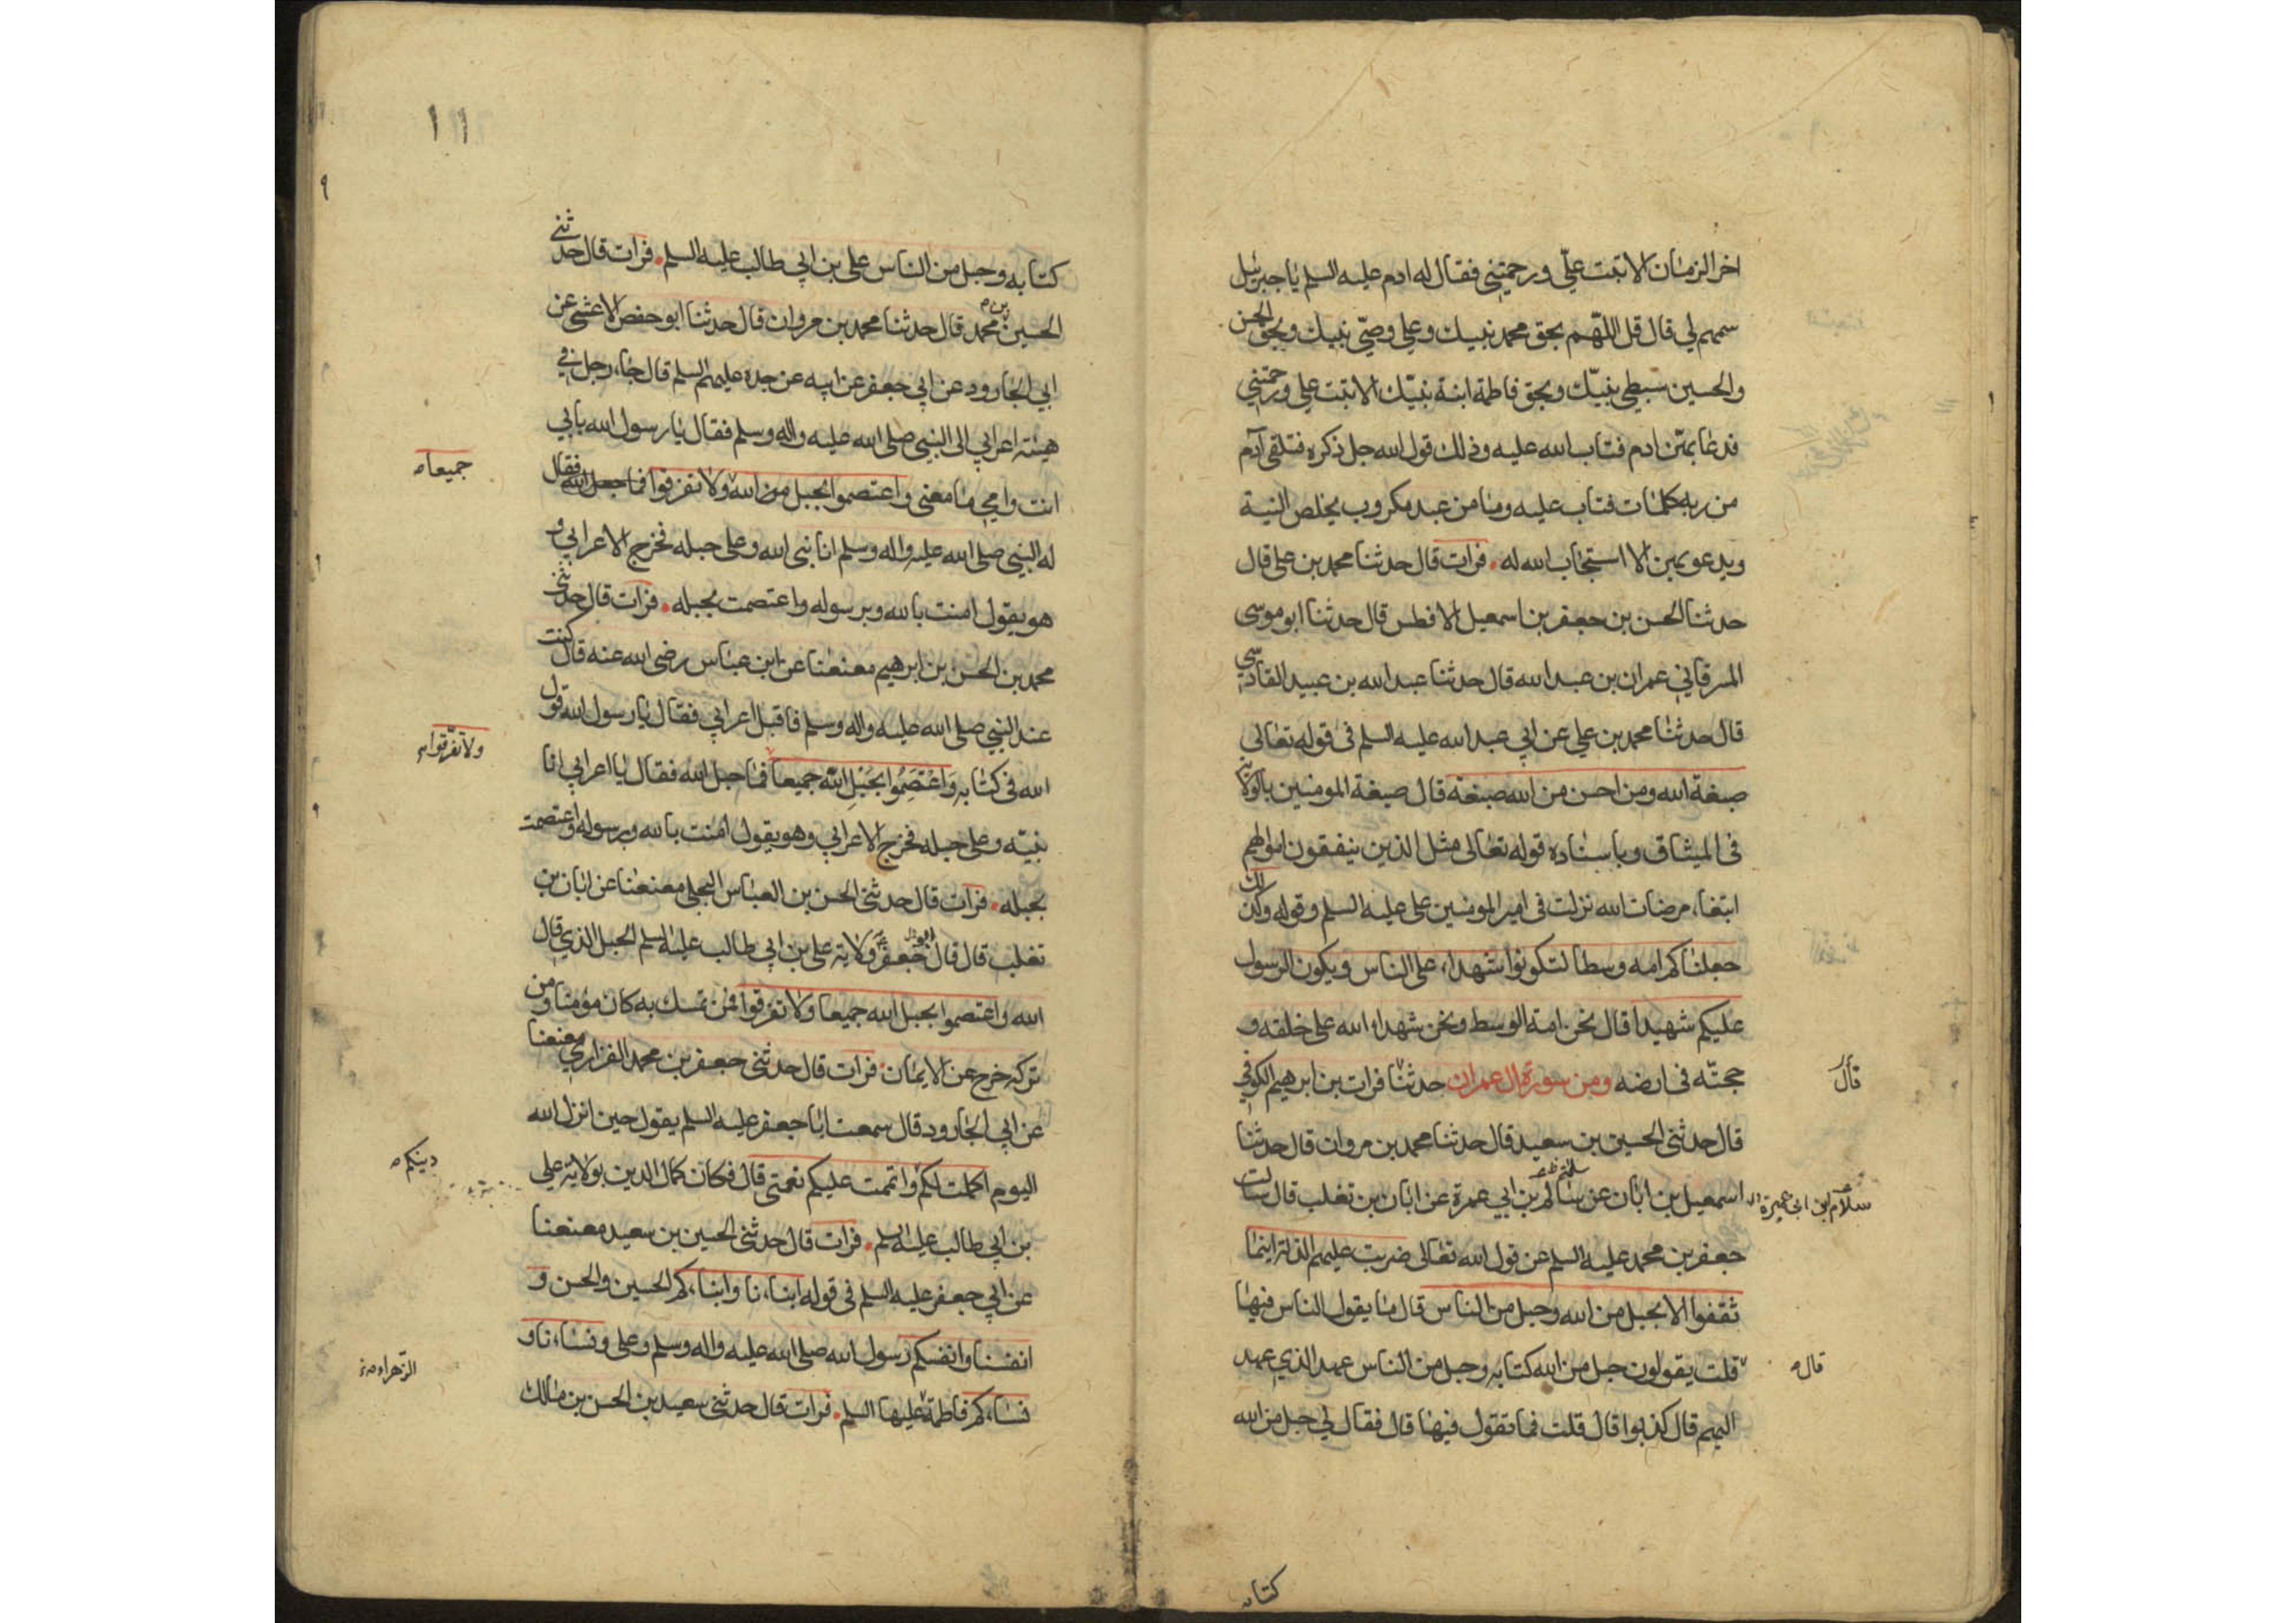 اخر الزمان الا تبت علي ورحمتني فقال له ادم عليه السلم يا جبرئيل
سمهم لي قال قل اللهم بحق محمد نبيك وعلي وصي نبيك وبحق الحسن
والحسين سبطي نبيك وبحق فاطمة ابنة نبيك الا تبت علي ورحمتني
فدعا بهن ادم فتاب الله عليه وذلك قول الله جل ذكره فتلقى آدم
من ربه كلمات فتاب عليه وما من عبد مكروب يخلص النية
ويدعو بهن الا استجاب الله له. فرات قال حدثنا محمد بن علي قال
حدثنا الحسن بن جعفر بن اسمعيل الافطس قال حدثنا ابو موسى
المسرقاني عمران بن عبد الله قال حدثنا عبد الله بن عبيد القادسي
قال حدثنا محمد بن علي عن ابي عبد الله عليه السلم في قوله تعالى
صبغة الله ومن احسن من الله صبغة قال صبغة المومنين بالولاية
في الميثاق وباسناده قوله تعالى مثل الذين ينفقون اموالهم
ابتغاء مرضات الله نزلت في امير المومنين علي عليه السلم وقوله وكذلك
جعلناكم امه وسطا لتكونوا شهداء على الناس ويكون الرسول
عليكم شهيدا قال نحن امة الوسط ونحن شهداء الله على خلقه و
حجته في ارضه ومن سورة ال عمران حدثنا فرات بن ابرهيم الكوفي
قال
قال حدثني الحسين بن سعيد قال حدثنا محمد بن مروان قال حدثنا
اسمعيل بن ابان عن سالم بن ابي عمرة عن ابان بن تغلب قال سالت
سلام بن ابي عميرة
جعفر بن محمد عليه السلم عن قول الله تعالى ضربت عليهم الذلة اينما
ثقفوا الا بحبل من الله وحبل من الناس قال ما يقول الناس فيها
قلت يقولون حبل من الله كتابه وحبل من الناس عهد الذي عهد
قال
اليهم قال كذبوا قال قلت فما تقول فيها قال فقال لي حبل من الله
كتابه
١١
كتابه وحبل من الناس علي بن ابي طالب عليه السلم. فرات قال حدثني
الحسين بن محمد قال حدثنا محمد بن مروان قال حدثنا ابو حفص الاعشى عن
ابي الجارود عن ابي جعفر عن ابيه عن جده عليهم السلم قال جاء رجل في
هيئة اعرابي الى النبي صلى الله عليه واله وسلم فقال يا رسول الله بابي
انت وامي ما معنى واعتصموا بحبل من الله ولا تفرقوا فما حبل الله فقال
جميعا
له النبي صلى الله عليه واله وسلم انا نبي الله وعلي حبله فخرج الاعرابي و
هو يقول امنت بالله وبرسوله واعتصمت بحبله. فرات قال حدثني
محمد بن الحسن بن ابرهيم معنعنا عن ابن عباس رضي الله عنه قال كنت
عند النبي صلى الله عليه واله وسلم فاقبل اعرابي فقال يا رسول الله قول
الله في كتابه وَاعْتَصِمُوا بِحَبْلِ اللّه جميعا فما حبل الله فقال يا اعرابي انا
ولا تفرقوا
نبيه وعلي حبله فخرج الاعرابي وهو يقول امنت بالله وبرسوله واعتصمت
بحبله. فرات قال حدثني الحسن بن العباس البجلي معنعنا عن ابان بن
تغلب قال قال ابو جعفر ولاية علي بن ابي طالب عليه السلم الحبل الذي قال
الله واعتصموا بحبل الله جميعا ولا تفرقوا فمن تمسك به كان مؤمنا ومن
تركه خرج عن الايمان. فرات قال حدثني جعفر بن محمد الفزاري معنعنا
عن ابي الجارود قال سمعت ابا جعفر عليه السلم يقول حين انزل الله
اليوم اكملت لكم واتممت عليكم نعمتي قال فكان كمال الدين بولاية علي
دينكم
بن ابي طالب عليه السلم. فرات قال حدثني الحسين بن سعيد معنعنا
عن ابي جعفر عليه السلم في قوله ابناءنا وابناءكم الحسين والحسن و
انفسنا وانفسكم رسول الله صلى الله عليه واله وسلم وعلي ونساءنا و
نساءكم فاطمة عليها السلم. فرات قال حدثني سعيد بن الحسن بن مالك
الزهراء